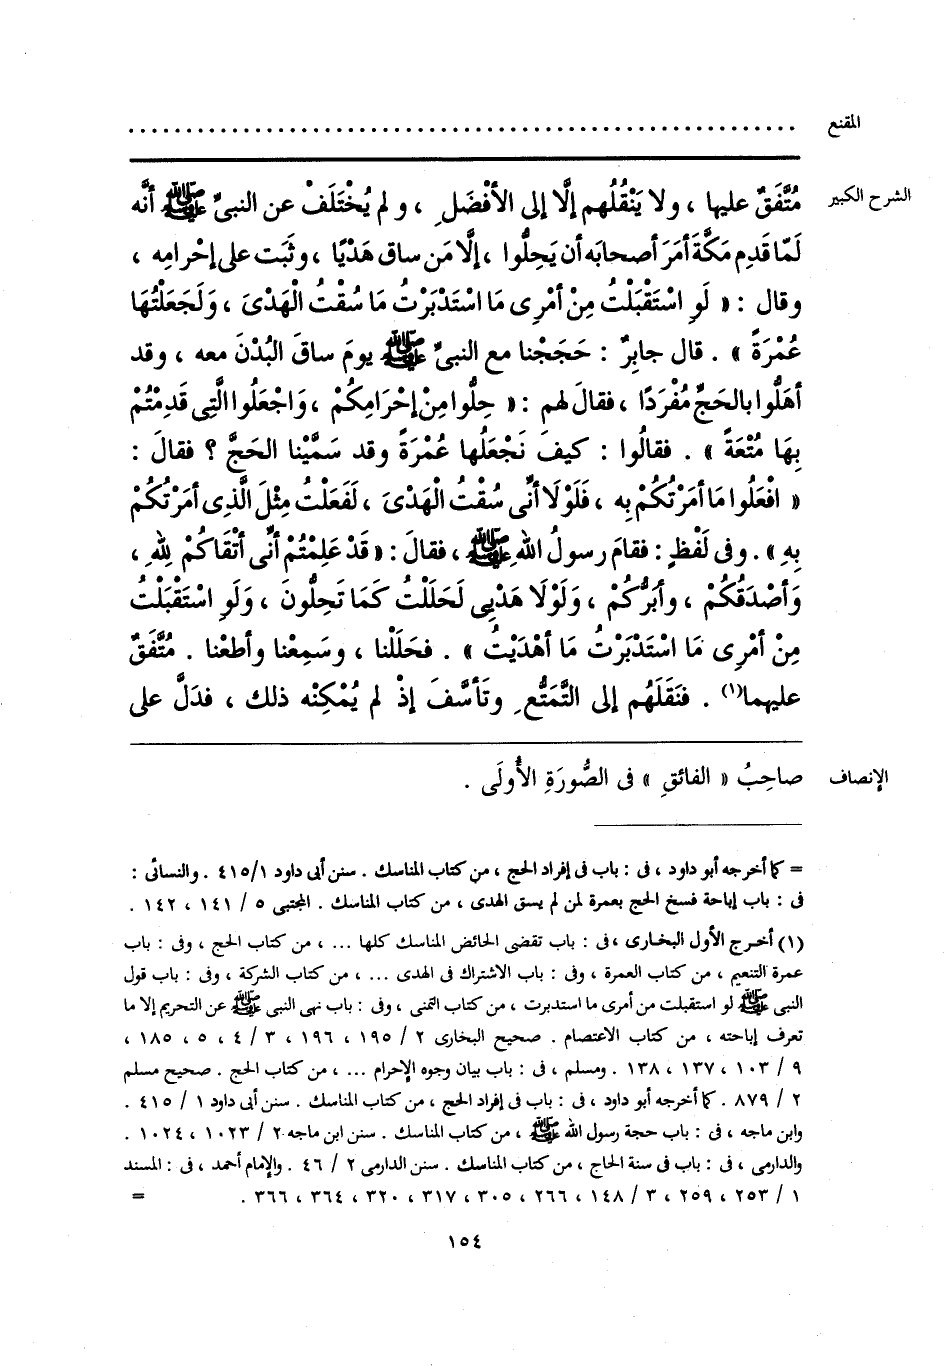 المقنع ............................................................
الشرح الكبير مُتَّفَقٌ عليها ، ولا يَنْقُلُهم إلَّا إلى الأفْضَلِ ، و لم يُخْتَلَفْ عن النبيِّ ﷺ أنَّه
لَمّا قَدِم مَكَّةَ أمَرَ أصحابَه أن يَحِلُّوا ، إلَّا مَن ساق هَدْيًا ، وثَبَت على إحْرامِه ،
وقال : « لَوِ اسْتَقْبَلْتُ مِنْ أمْرِى مَا اسْتَدْبَرْتُ مَا سُقْتُ الْهَدْىَ ، وَلَجَعَلْتُهَا
عُمْرَةً » . قال جابِرٌ : حَجَجْنا مع النبيِّ ﷺ يومَ ساقَ البُدْنَ معه ، وقد
أهَلُّوا بالحَجِّ مُفْرَدًا ، فقالَ لهم : « حِلُّوا مِنْ إحْرَامِكُمْ ، وَاجْعَلُوا الَّتِى قَدِمْتُمْ
بِهَا مُتْعَةً » . فقالُوا : كيفَ نَجْعَلُها عُمْرَةً وقد سَمَّيْنا الحَجَّ ؟ فقالَ :
« افْعَلُوا مَا أمَرْتُكُمْ بِه ، فَلَوْلَا أنِّى سُقْتُ الْهَدْىَ ، لَفَعَلْتُ مِثْلَ الَّذِى أمَرْتُكُمْ
بِهِ » . وفى لَفْظٍ : فقامَ رسولُ اللهِ ﷺ ، فقالَ : « قَدْ عَلِمْتُمْ أنِّى أتْقَاكُمْ لِلهِ ،
وَأصْدَقُكُمْ ، وأبَرُّكُمْ ، وَلَوْلَا هَدْيِى لَحَلَلْتُ كَمَا تَحِلُّونَ ، وَلَوِ اسْتَقْبَلْتُ
مِنْ أمْرِى مَا اسْتَدْبَرْتُ مَا أهْدَيْتُ » . فحَلَلْنا ، وسَمِعْنا وأطَعْنا . مُتَّفَقٌ
عليهما(١) . فنَقَلَهُم إلى التَّمَتُّعِ وتَأسَّفَ إذْ لم يُمْكِنْه ذلك ، فدَلَّ على
الإنصاف صاحِبُ « الفائقِ » فى الصُّورَةِ الأُولَى .
= كما أخرجه أبو داود ، فى : باب فى إفراد الحج ، من كتاب المناسك . سنن أبى داود ١/ ٤١٥ . والنسائى :
فى : باب إباحة فسخ الحج بعمرة لمن لم يسق الهدى ، من كتاب المناسك . المجتبى ٥ / ١٤١ ، ١٤٢ .
(١) أخرج الأول البخارى ، فى : باب تقضى الحائض المناسك كلها ... ، من كتاب الحج ، وفى : باب
عمرة التنعيم ، من كتاب العمرة ، وفى : باب الاشتراك فى الهدى ... ، من كتاب الشركة ، وفى : باب قول
النبى ﷺ لو استقبلت من أمرى ما استدبرت ، من كتاب التمنى ، وفى : باب نهى النبى ﷺ عن التحريم إلا ما
تعرف إباحته ، من كتاب الاعتصام . صحيح البخارى ٢ / ١٩٥ ، ١٩٦ ، ٣ / ٤ ، ٥ ، ١٨٥ ،
٩ / ١٠٣ ، ١٣٧ ، ١٣٨ . ومسلم ، فى : باب بيان وجوه الإحرام ... ، من كتاب الحج . صحيح مسلم
٢ / ٨٧٩ . كما أخرجه أبو داود ، فى : باب فى إفراد الحج ، من كتاب المناسك . سنن أبى داود ١ / ٤١٥ .
وابن ماجه ، فى : باب حجة رسول الله ﷺ ، من كتاب المناسك . سنن ابن ماجه ٢ / ١٠٢٣ ، ١٠٢٤ .
والدارمى ، فى : باب فى سنة الحاج ، من كتاب المناسك . سنن الدارمى ٢ / ٤٦ . والإمام أحمد ، فى : المسند
١ / ٢٥٣ ، ٢٥٩ ، ٣ / ١٤٨ ، ٢٦٦ ، ٣٠٥ ، ٣١٧ ، ٣٢٠ ، ٣٦٤ ، ٣٦٦ . =
١٥٤